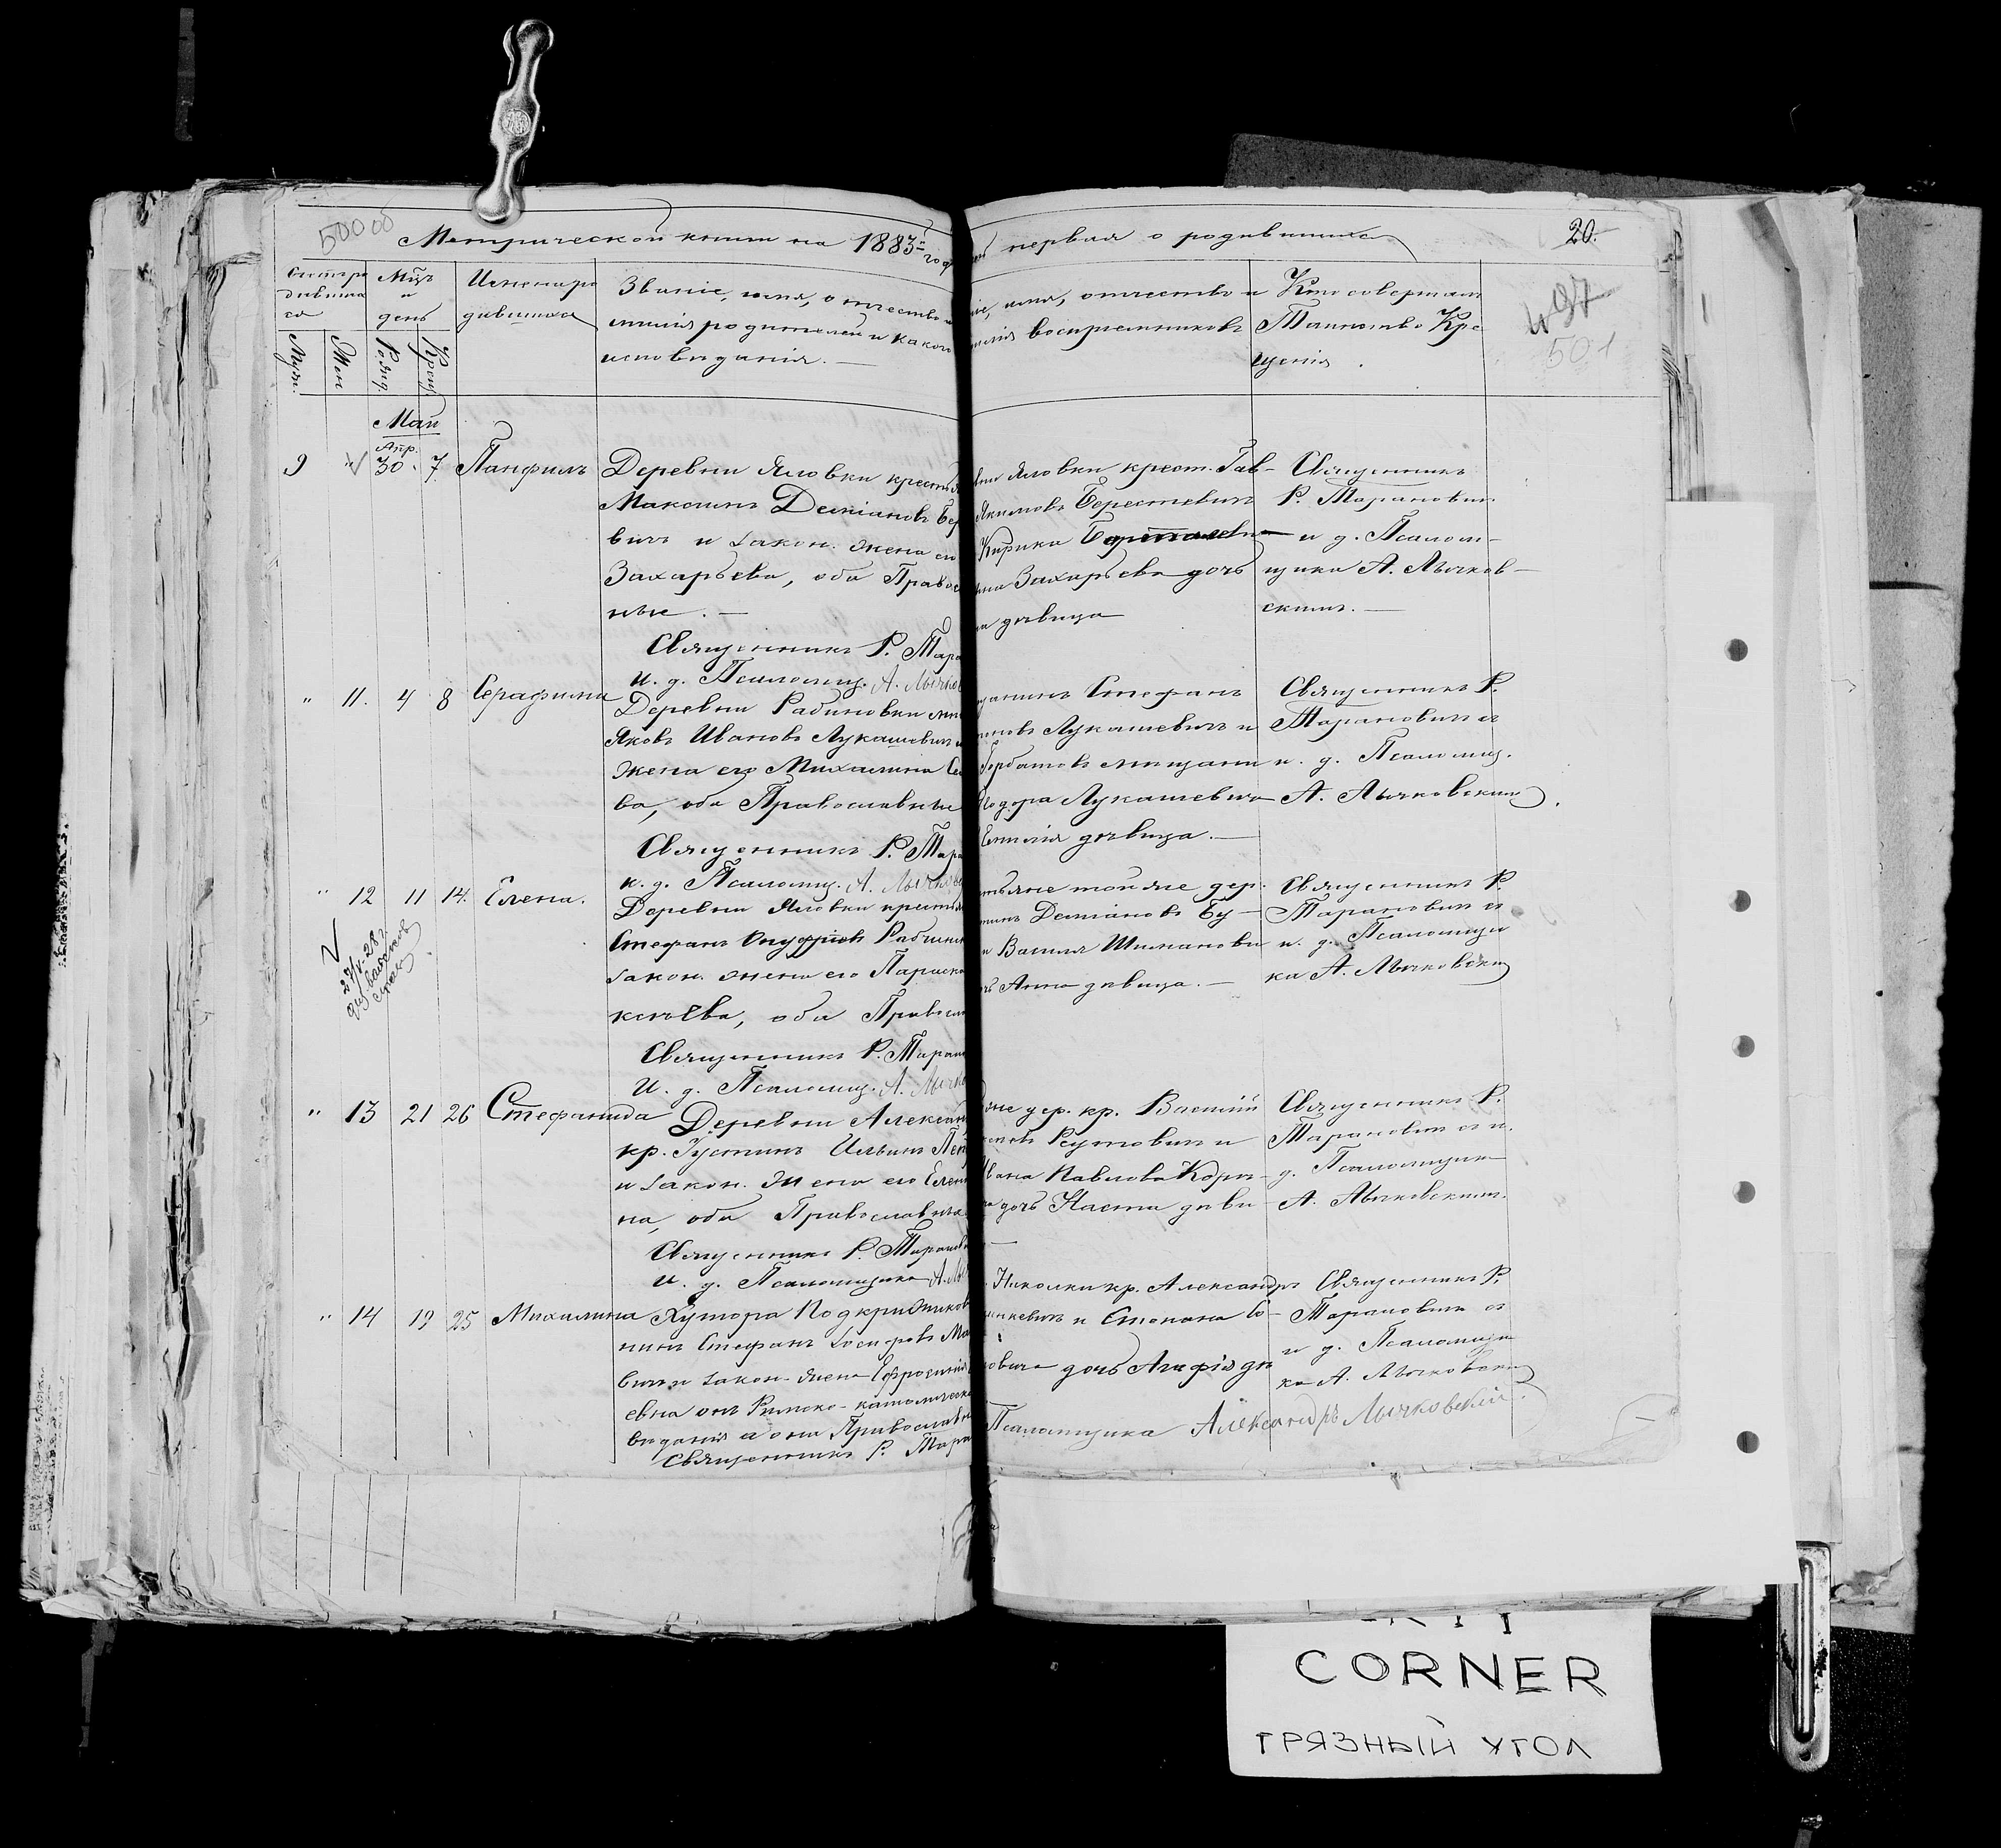 50000
Метрической книги на 1883й год
первая о родившихся
20.
97
501
Счетъ ро
дивших
ся
Муж.
Жен
Мцъ
и
день
Рожд.
Крещ.
Имена ро
дившихся
Званіе, имя, отчество и
милія родителей и какого
исповѣданія. —
имя, отчество и
воспріемниковъ
Кто совершалъ
Таинство Кре
щенія.
Май
9 " Апр. 30. 7. Панфилъ
Деревни Яловки крестья
Максимъ Даміановъ Бер
вичъ и закон. жена его
Захарьева, оба Правос
ные. —
Священникъ Р. Тара
И. д. Псаломщ. А. Лычков
Яловки крест. Гав-
Якимовъ Берестевичъ
Кирика
Захарьева дочь
дѣвица
Священникъ
Р. Тарановичъ
и д. Псалом-
щика А. Лычков-
скимъ. —
" 11. 4 8 Серафима
Деревни Рабиновки мѣщ
Яковъ Ивановъ Лукашевичъ и
жена его Михалина Се
ва, оба Православные
Священникъ Р. Тара
и. д. Псаломщ. А. Лычков
щанинъ Стефанъ
новъ Лукашевичъ и
Горбатовъ мѣщани
Тодора Лукашевича
Емилія дѣвица. —
Священникъ Р.
Тарановичъ съ
и. д. Псаломщ.
А. Лычковскимъ.
" 12 11 14. Елена.
27/V-28 г.
Деревни Яловки крестья
Стефанъ Онуфріевъ Рабчинск
закон. жена его Параске
ксѣева, оба Правосла
Священникъ Р. Таран
И. д. Псаломщ. А. Лычко
тьяне той же дер.
Даміановъ Бу-
и Василя Шиманови
Анна дѣвица. —
Священникъ Р.
Тарановичъ съ
и. д. Псаломщи
ка А. Лычковским
" 13 21 26 Стефанида
Деревни Александ
кр. Іустинъ Ильинъ Пет
и закон. жена его Елен
на, оба Православные
Священникъ Р. Таранов
И. д. Псаломщика А. Лыч
же дер. кр. Василій
Рутовичъ и
Ивана Павлова Корн-
дочь Настя дѣви
Священникъ Р.
Тарановичъ съ и.
д. Псаломщика
А. Лычковскимъ.
" 14 19 25 Михалина
Хутора Подкрижиков
нинъ Стефанъ Іосифовъ Ма
вичъ и закон. жена Ефросинія
евна онъ Римско-католическ
вѣданія а она Православн
Священникъ Р. Тара
Николки кр. Александръ
инкевичъ и Степана Со-
овича дочь Агафія дѣ
Псаломщика Александръ Лычковскій.
Священникъ Р.
Тарановичъ съ
и д. Псаломщи
ка А. Лычковским
CORNER
ГРЯЗНЫЙ УГОЛ